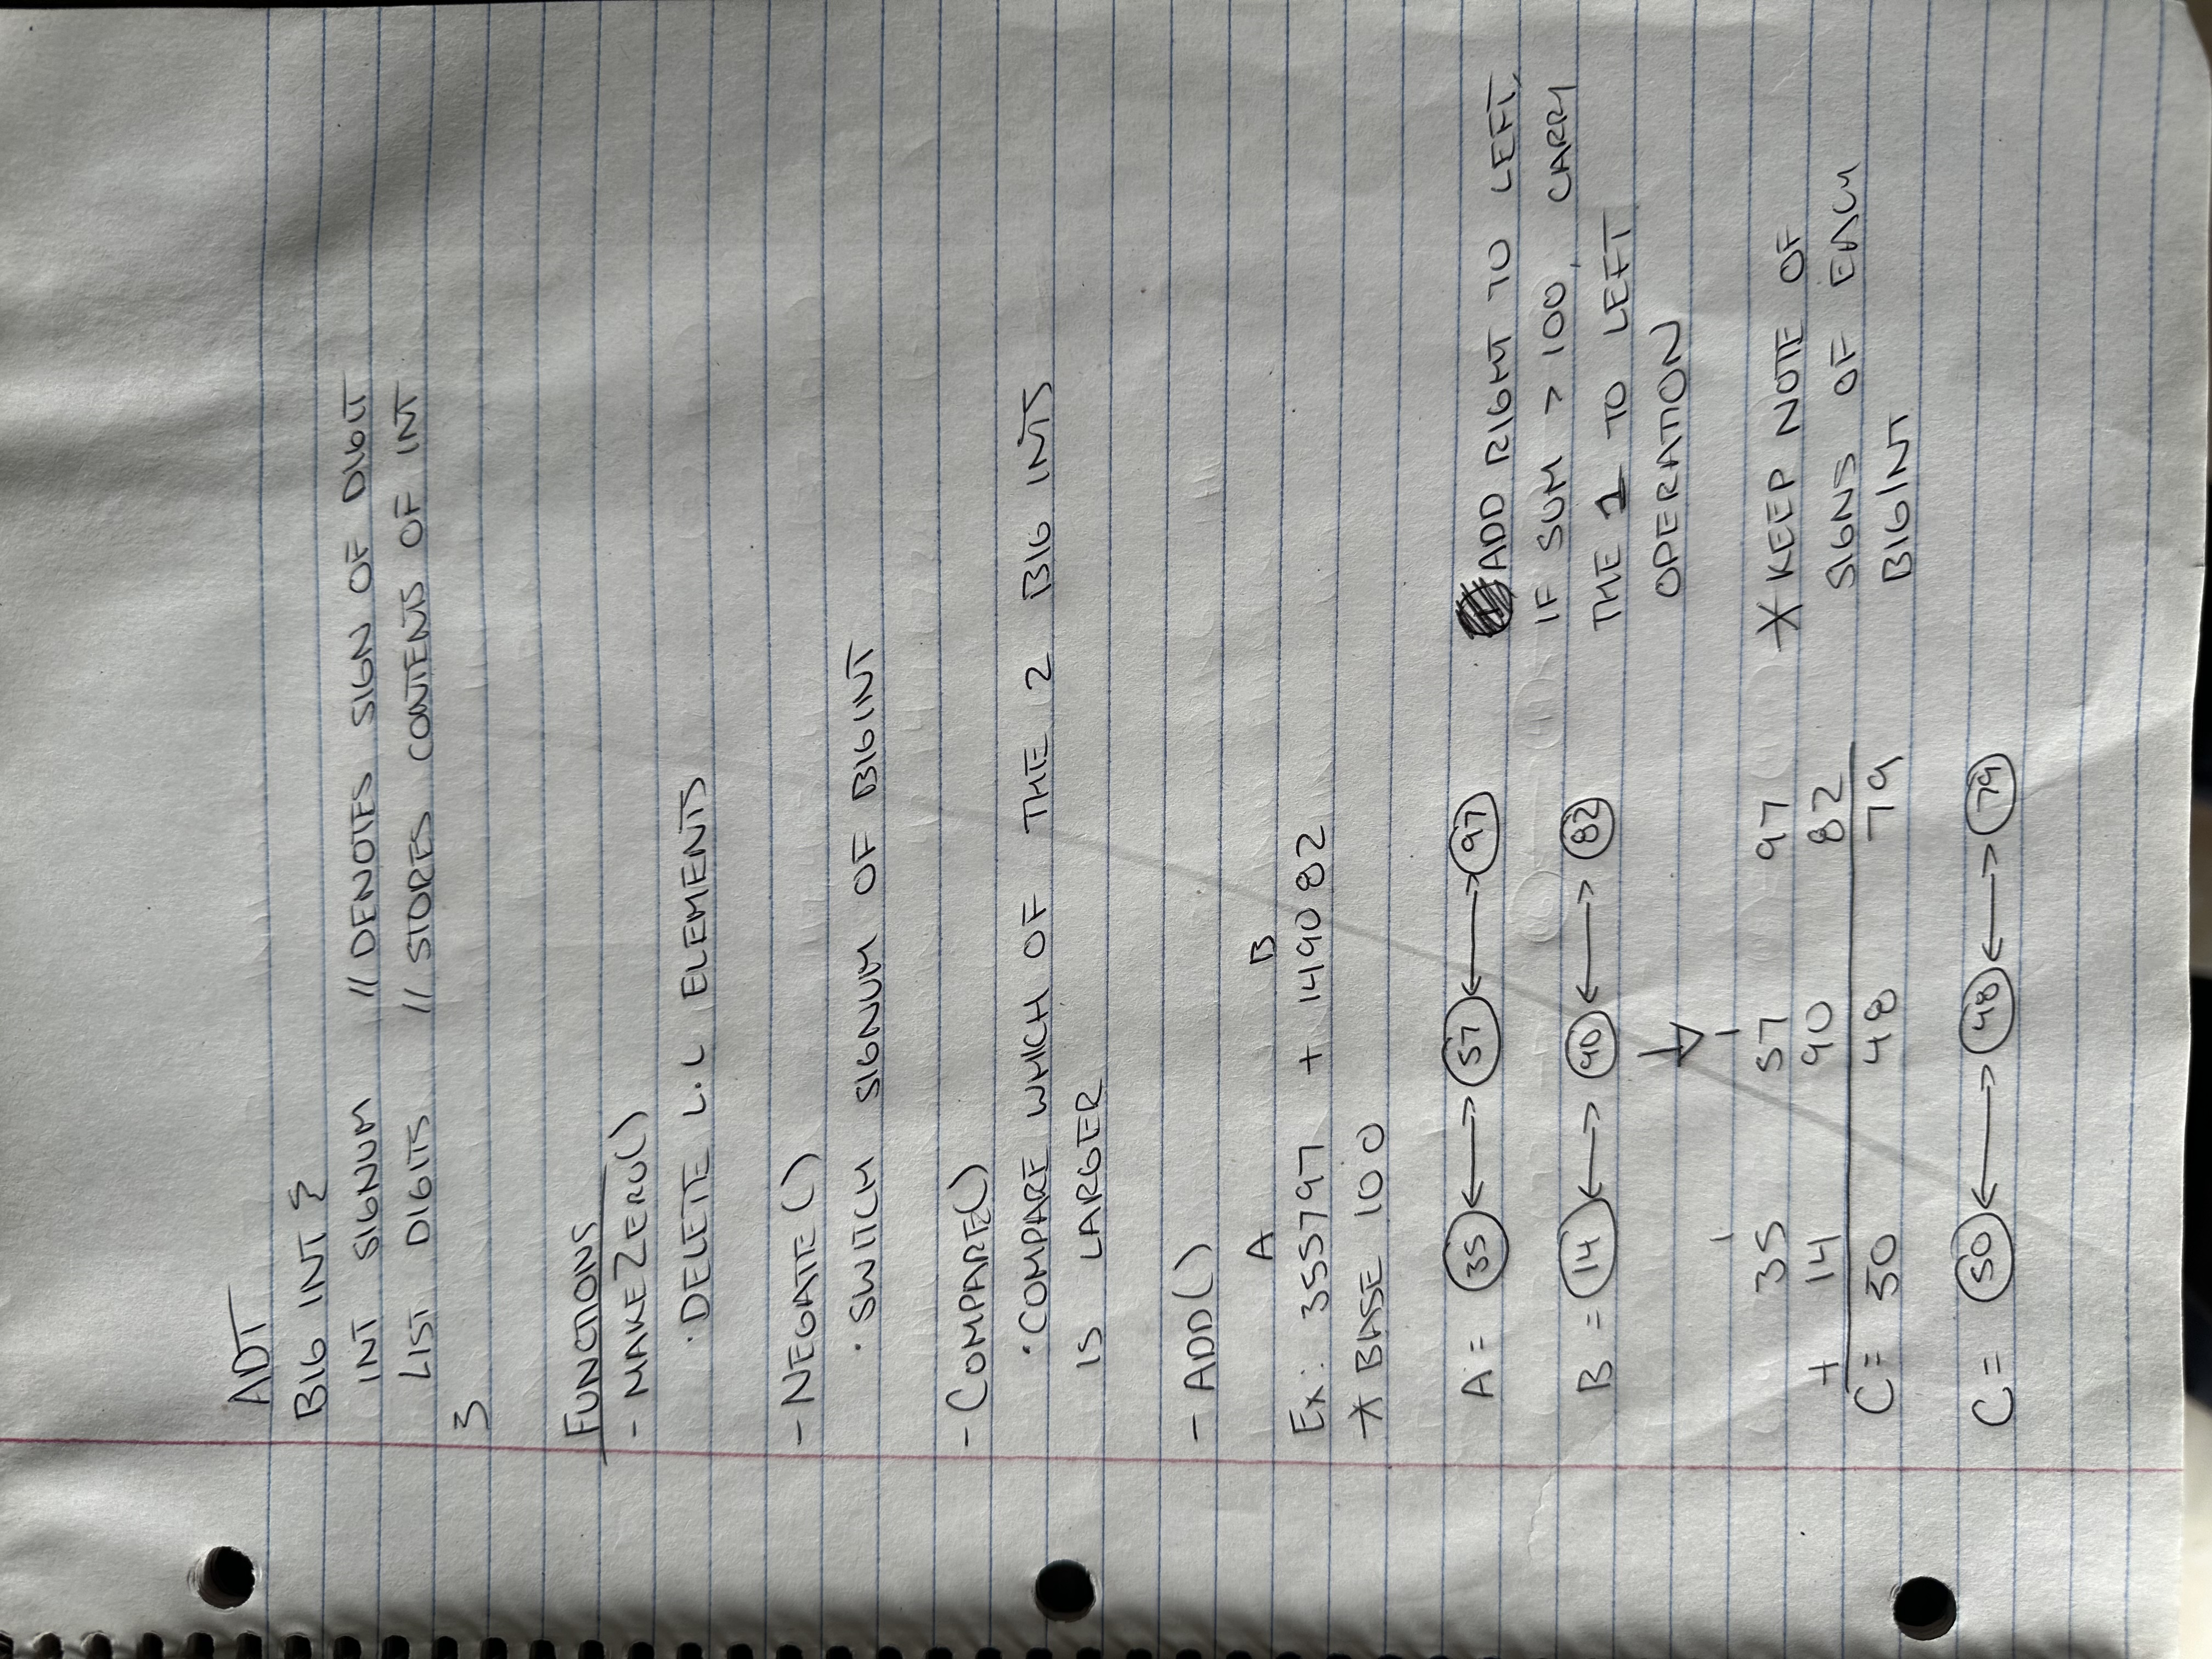 ADT
BIG INT {
INT SIGNUM // DENOTES SIGN OF DIGIT
LIST DIGITS // STORES CONTENTS OF INT
}
FUNCTIONS
- MAKEZERO()
· DELETE L.L ELEMENTS
- NEGATE ()
· SWITCH SIGNUM OF BIGINT
- COMPARE()
· COMPARE WHICH OF THE 2 BIG INTS
IS LARGER
- ADD()
A B
Ex: 355797 + 149082
* BASE 100
A = 35 <-> 57 <-> 97
B = 14 <-> 90 <-> 82
ADD RIGHT TO LEFT,
IF SUM > 100, CARRY
THE 1 TO LEFT
OPERATION
1 1
35 57 97
+ 14 90 82
C = 50 48 79
* KEEP NOTE OF
SIGNS OF EACH
BIGINT
C = 50 <-> 48 <-> 79